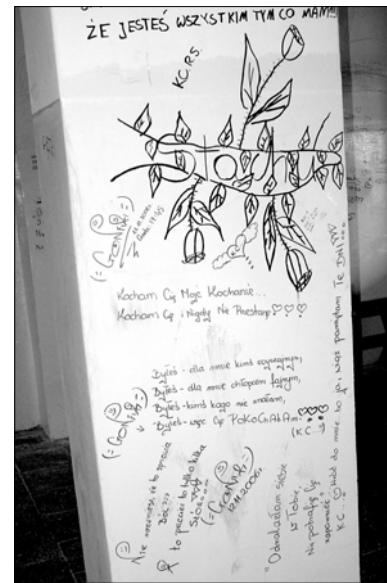 ŻE JESTEŚ WSZYSTKIM TYM CO MAM!!!
K.C.R.S.
Stachu
Kocham Cię Moje Kochanie...
Kocham Cię i Nigdy Nie Przestanę
Byłeś - dla mnie kimś zwyczajnym,
Byłeś - dla mnie chłopcem fajnym,
Byłeś - kimś kogo nie znałam,
Byłeś - więc Cię PoKoChAłAm
(K.C.
Nie rozumiesz, że to sprawia
to przecież to tylko kilka
słów...
12.11.2006r.
"Odnalazłam siebie
w Tobie
Nie potrafię Cię
zapomnieć"
K.C.
do mnie to ja, więc pamiętam Te DNI...